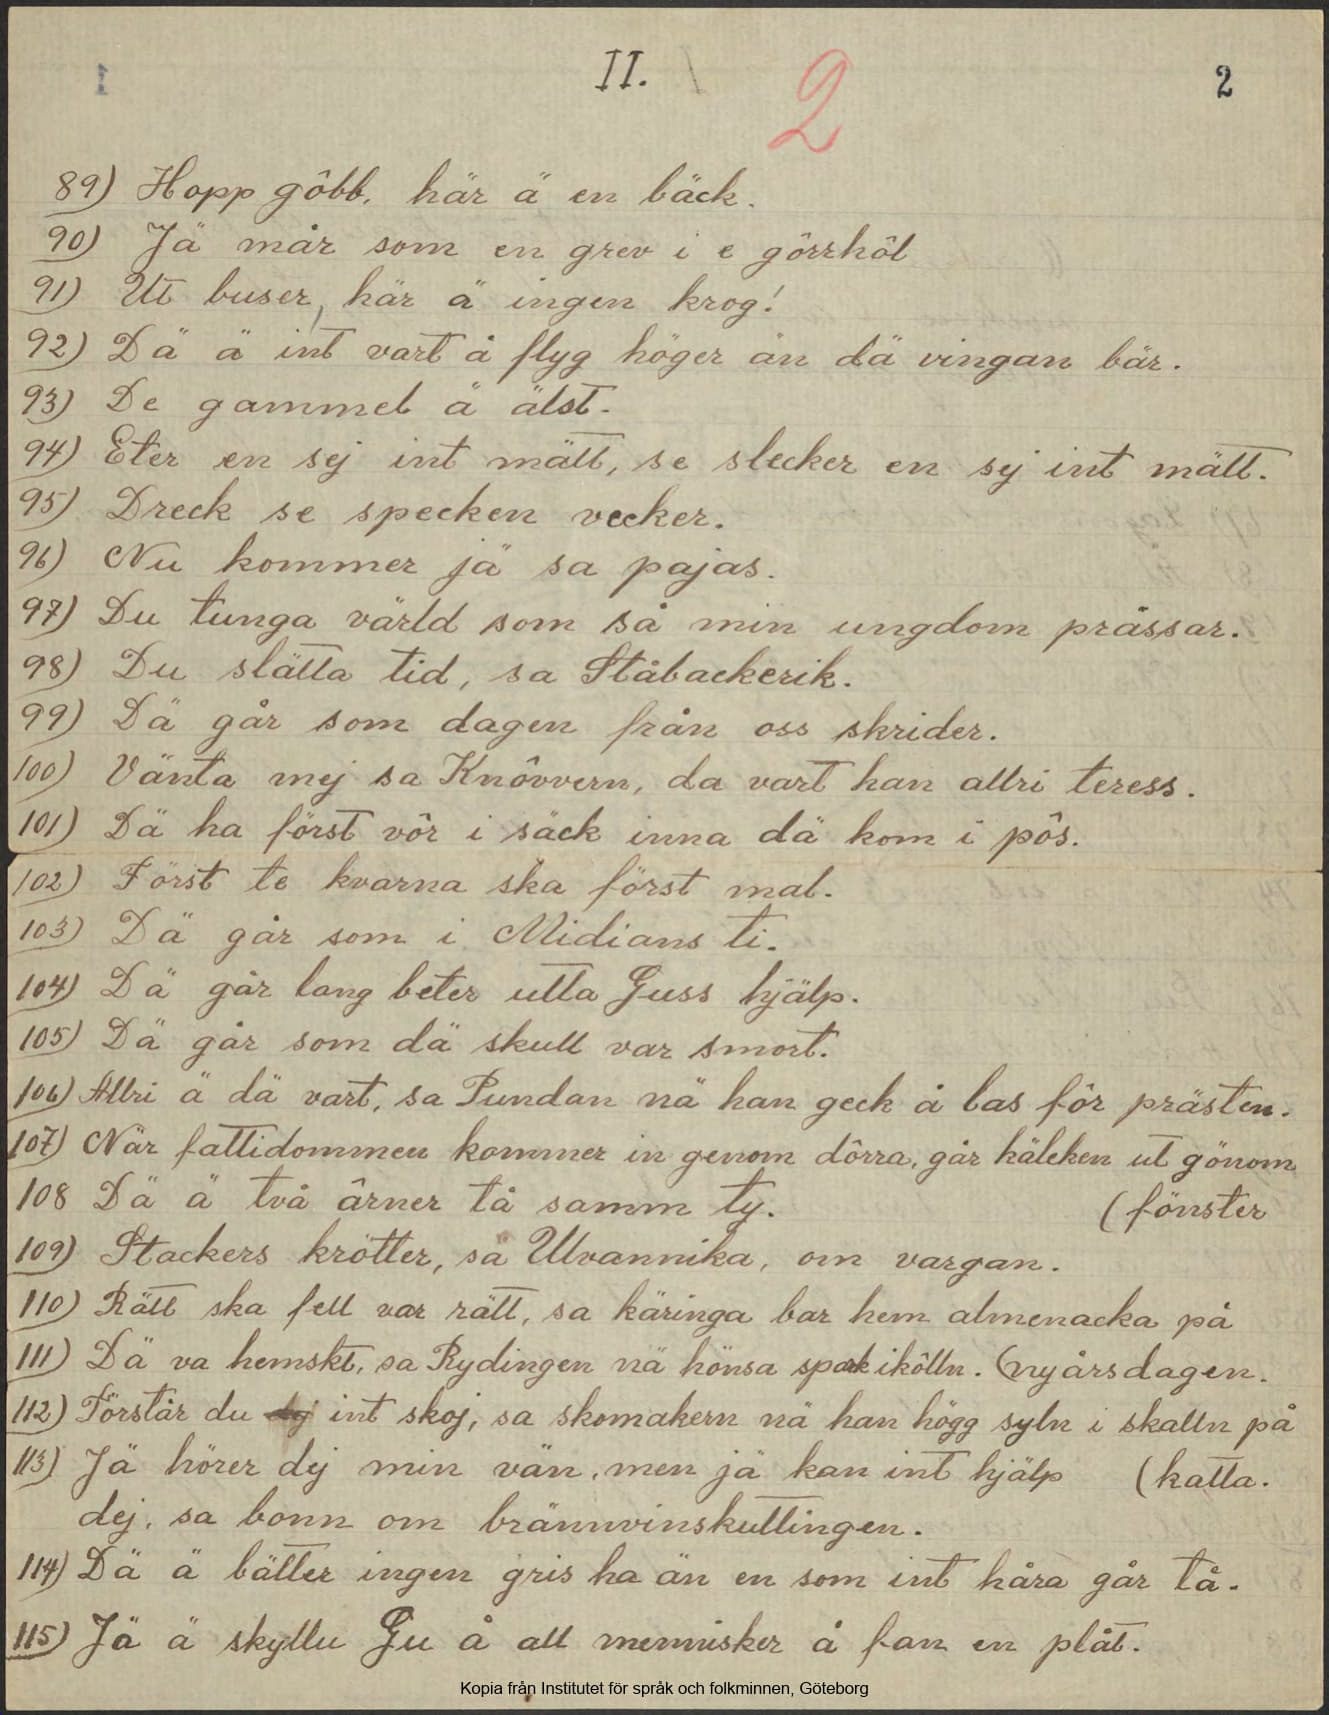 II.
2
2
89) Hopp gôbb, här ä en bäck.
90) Jä mår som en grev i e gôrrhôl
91) Ut buser, här ä ingen krog!
92) Dä ä int vart å flyg höger än dä vingan bär.
93) De gammel ä älst.
94) Eter en sej int mätt, se slecker en sej int mätt.
95) Dreck se specken vecker.
96) Nu kommer jä sa pajas.
97) Du tunga värld som så min ungdom prässar.
98) Du slätta tid, sa Ståbackerik.
99) Dä går som dagen från oss skrider.
100) Vänta mej sa Knôvvern, da vart han allri teress.
101) Dä ha först vôr i säck inna dä kom i pôs.
102) Först te kvarna ska först mal.
103) Dä går som i Midians ti.
104) Dä går lang beter utta Guss hjälp.
105) Dä går som dä skull var smort.
106) Allri ä dä vart, sa Pundan nä han geck å las fôr prästen.
107) När fattidommen kommer in genom dôrra, går käleken ut gönom
108 Dä ä två ârner tå samm ty. (fönster
109) Stackers krötter, sa Ulvannika, om vargan.
110) Rätt ska fell var rätt, sa käringa bar hem almenacka på
111) Dä va hemskt, sa Rydingen nä hönsa spark ikôlln. (nyårsdagen.
112) Förstår du int skoj, sa skomakern nä han högg syln i skalln på
113) Jä hörer dej min vän, men jä kan int hjälp (katta.
dej, sa bonn om brännvinskuttingen.
114) Dä ä bätter ingen gris ha än en som int håra går tå.
115) Jä ä skyllu Gu å all mennisker å fan en plåt.
Kopia från Institutet för språk och folkminnen, Göteborg